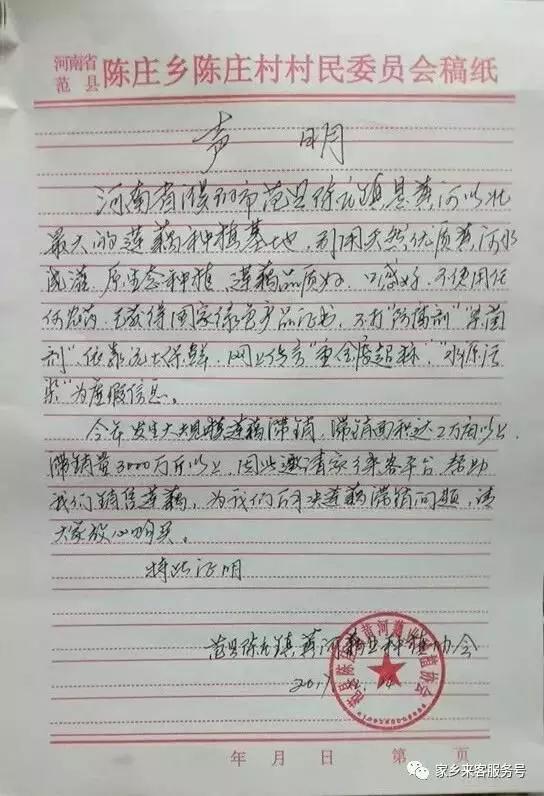 河南省
范 县
陈庄乡陈庄村村民委员会稿纸
声 明
河南省濮阳市范县陈庄镇是黄河以北
最大的莲藕种植基地，利用天然优质黄河水
浇灌，原生态种植，莲藕品质好，口感好，不使用任
何农药，已获得国家绿色产品证书，不打"防腐剂""杀菌
剂"，依靠泥土保鲜，网上传言"重金属超标"，"水源污
染"为虚假信息。
今年发生大规模莲藕滞销，滞销面积达2万亩以上，
滞销量3000万斤以上，因此邀请家乡来客平台，帮助
我们销售莲藕，为我们解决莲藕滞销问题，请
大家放心购买。
特此证明
范县陈庄镇黄河藕业种植协会
201
年 月 日 第 页
家乡来客服务号